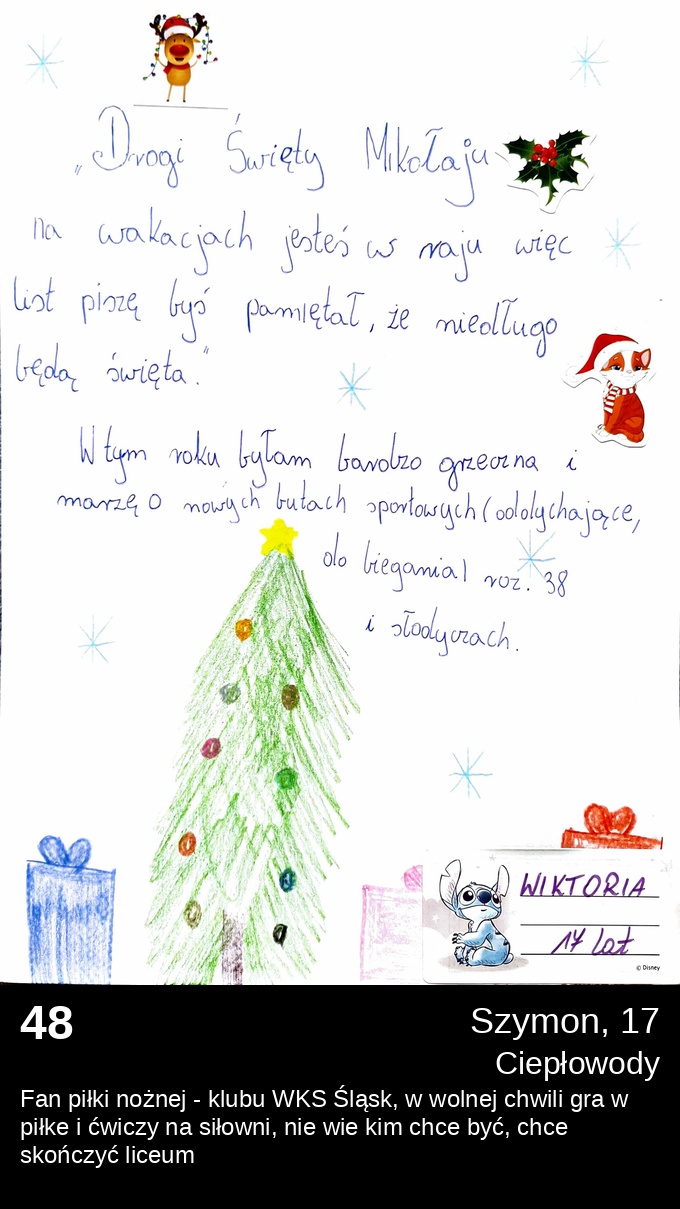 „Drogi Święty Mikołaju
na wakacjach jesteś w raju więc
list piszę byś pamiętał, że niedługo
będą święta."
W tym roku byłam bardzo grzeczna i
marzę o nowych butach sportowych (oddychające,
do biegania) roz. 38
i słodyczach.
WIKTORIA
17 lat
© Disney
48
Szymon, 17
Ciepłowody
Fan piłki nożnej - klubu WKS Śląsk, w wolnej chwili gra w
piłke i ćwiczy na siłowni, nie wie kim chce być, chce
skończyć liceum